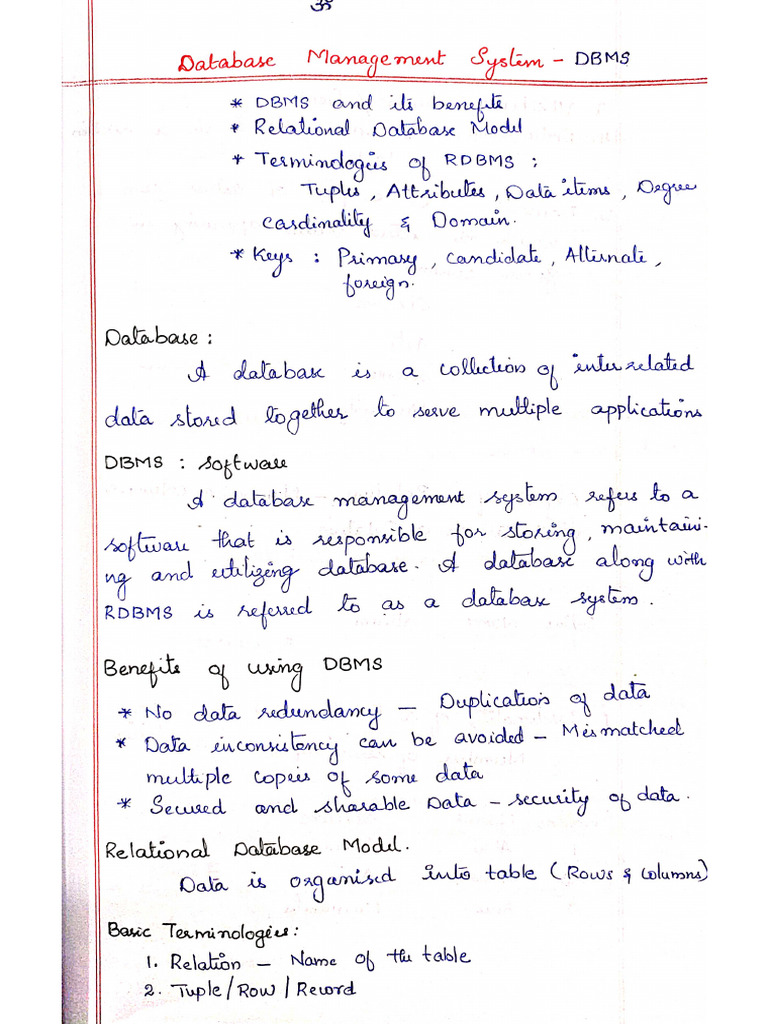 ॐ
Database Management System - DBMS
* DBMS and its benefits
* Relational Database Model
* Terminologies of RDBMS :
Tuples, Attributes, Data items, Degree
Cardinality & Domain.
* Keys : Primary, Candidate, Alternate,
foreign.
Database :
A database is a collection of interrelated
data stored together to serve multiple applications
DBMS : Software
A database management system refers to a
software that is responsible for storing, maintaini-
ng and utilizing database. A database along with
RDBMS is referred to as a database system.
Benefits of using DBMS
* No data redundancy – Duplication of data
* Data inconsistency can be avoided – Mismatched
multiple copies of some data
* Secured and sharable Data – security of data.
Relational Database Model.
Data is organised into table (Rows & Columns)
Basic Terminologies :
1. Relation – Name of the table
2. Tuple / Row / Record